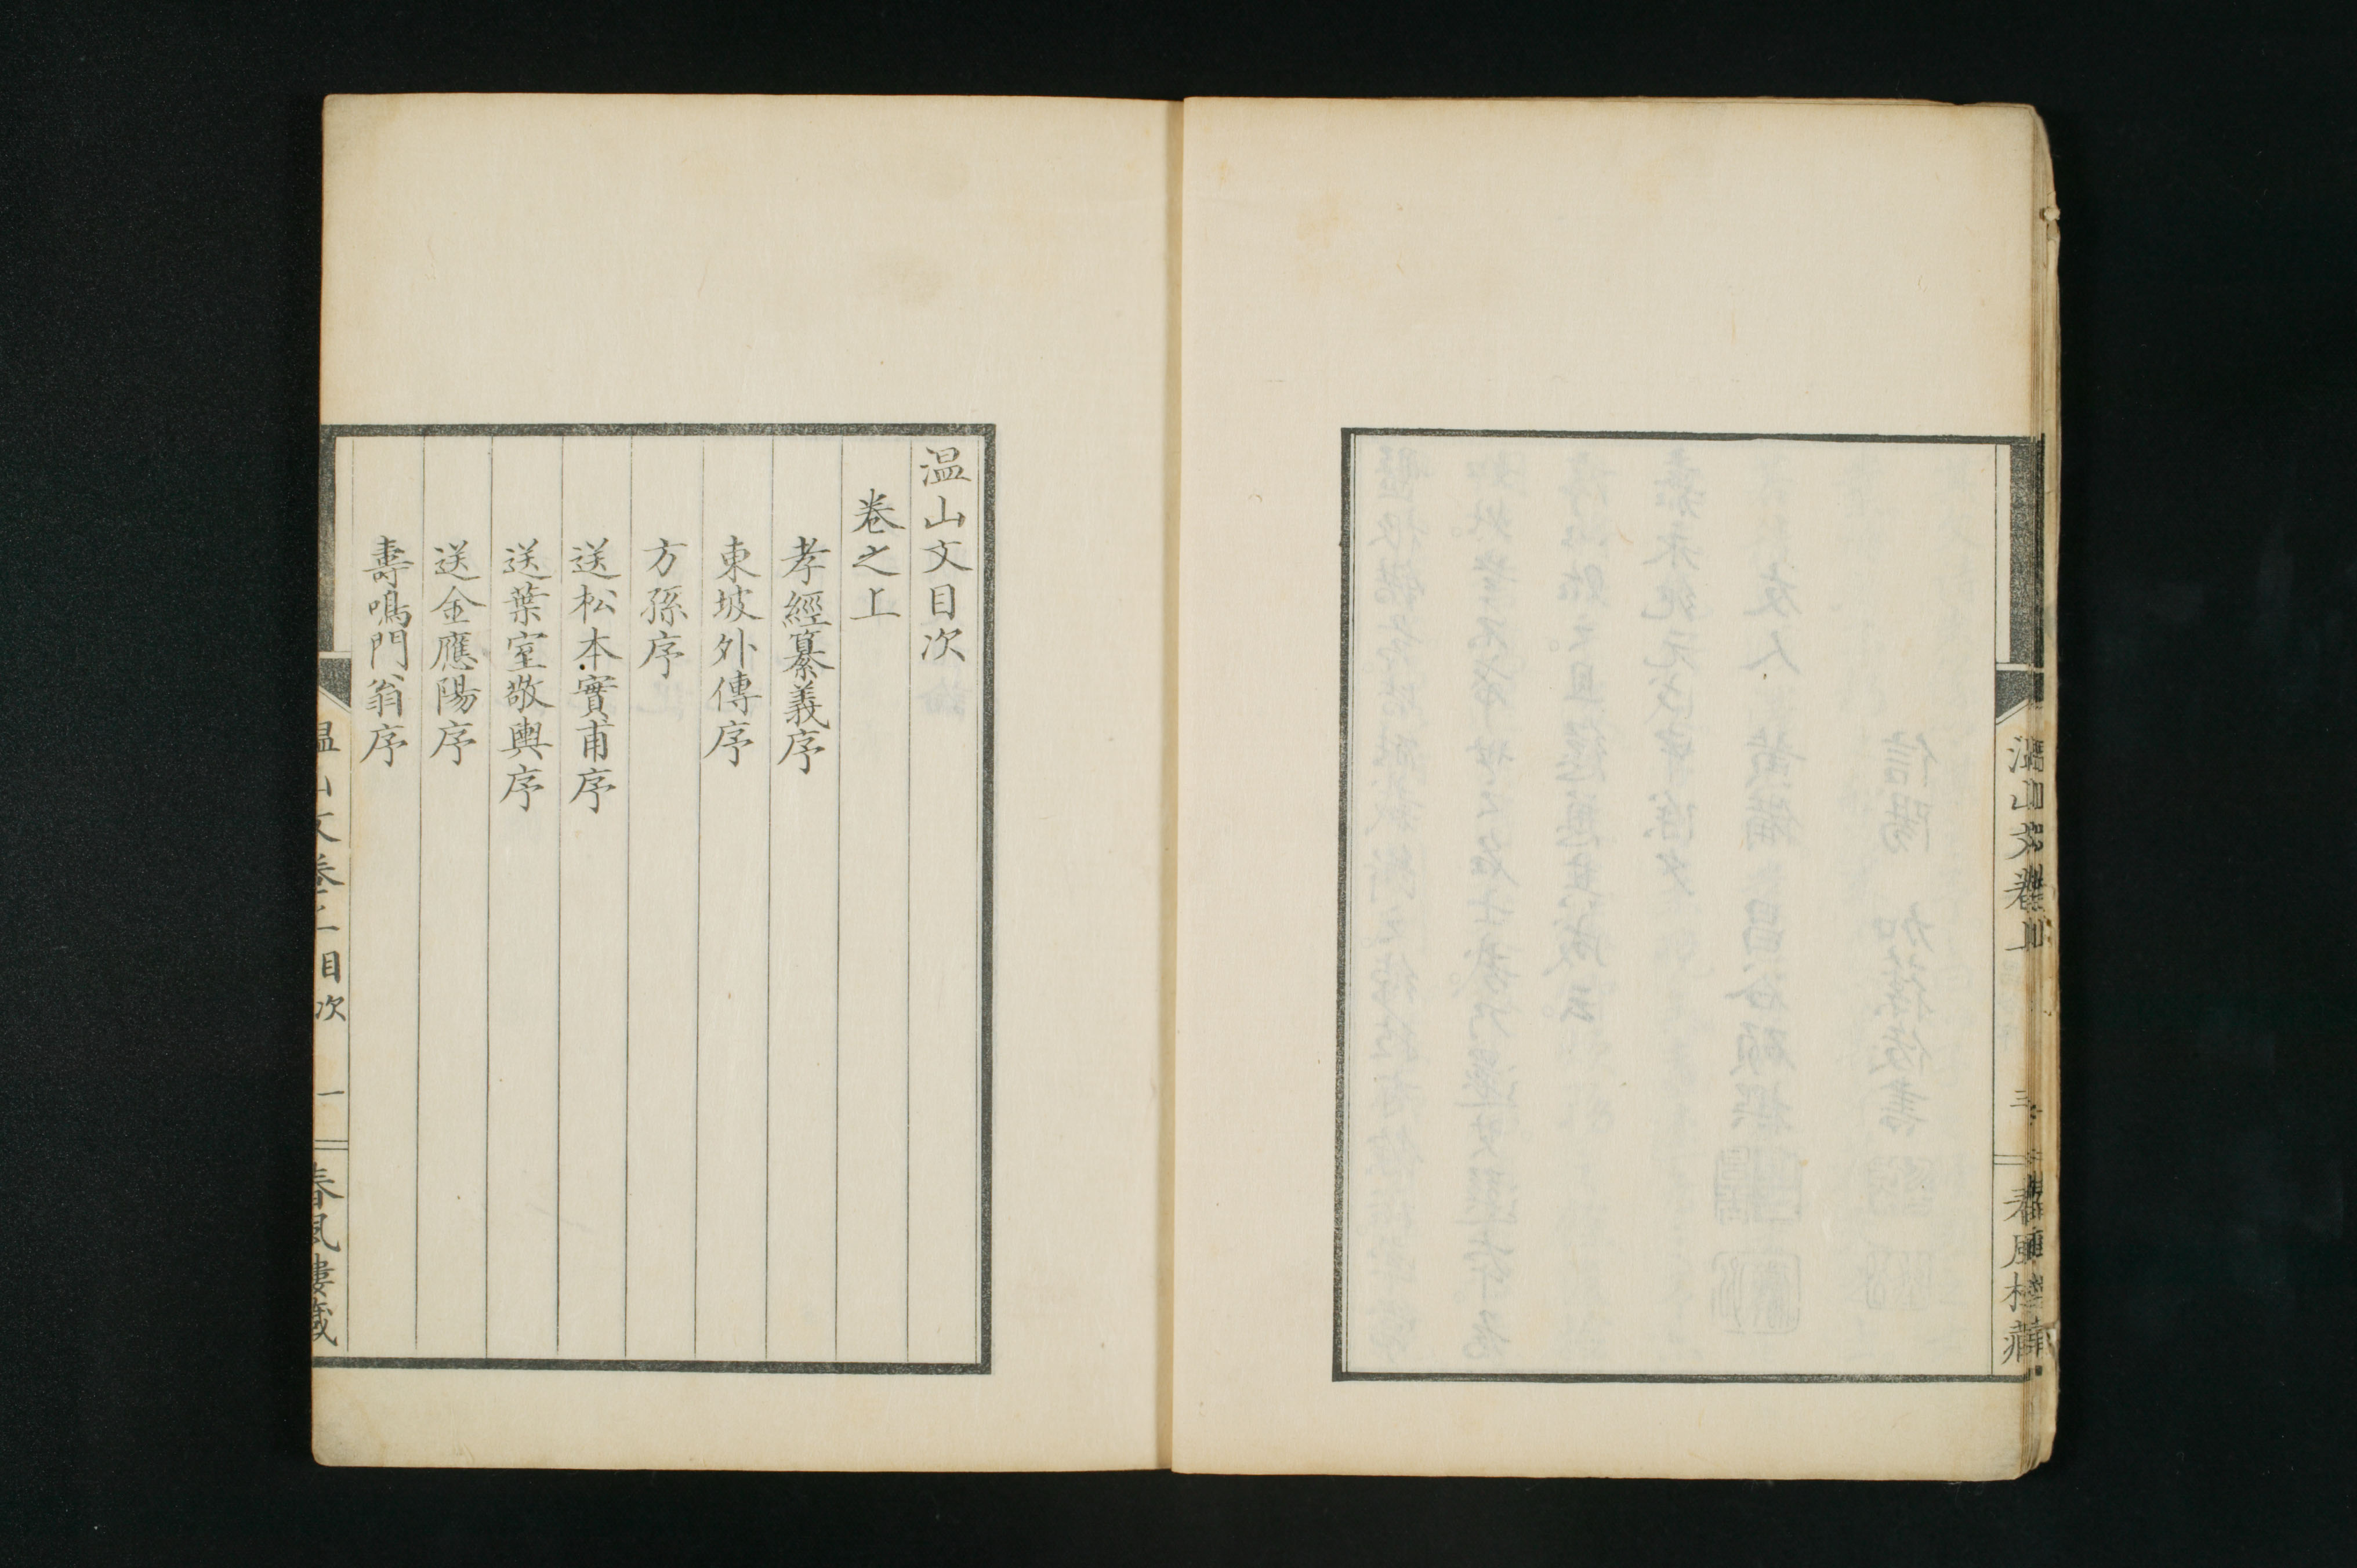 温山文卷上
三
春風樓藏
温山文目次
卷之上
孝經纂義序
東坡外傳序
方孫序
送松本實甫序
送葉室敬輿序
送金應陽序
壽鳴門翁序
温山文卷上目次
一
春風樓藏